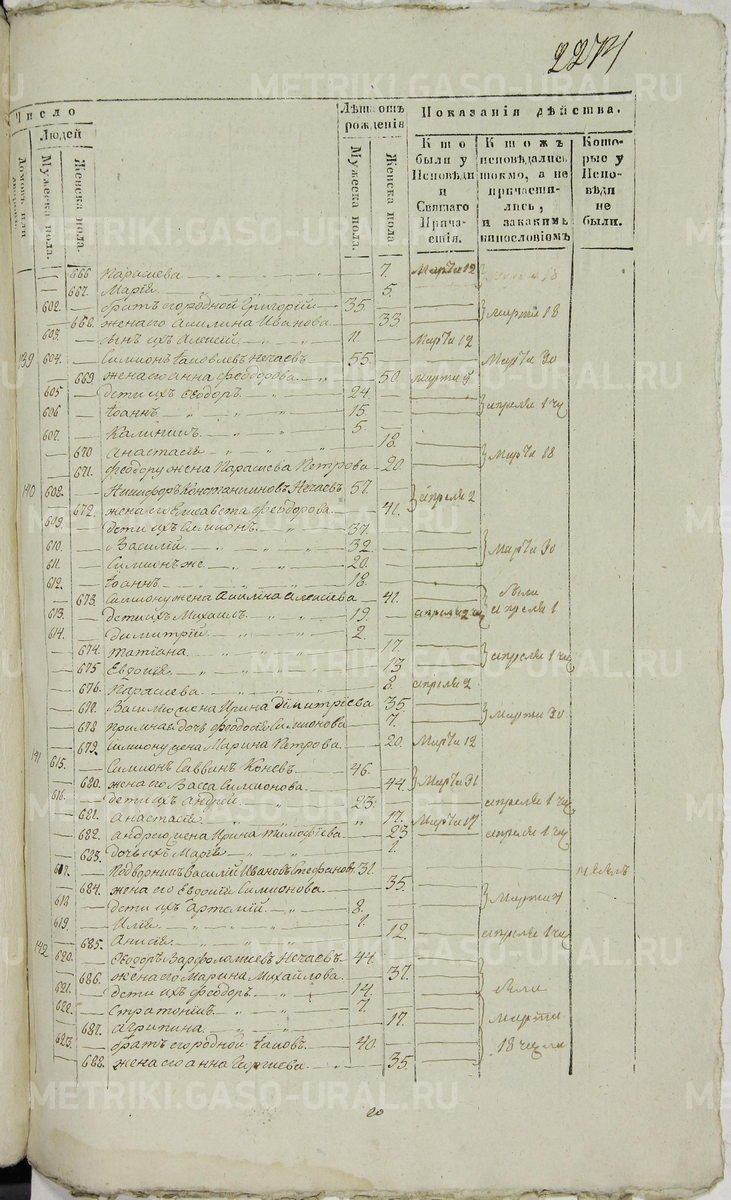 227
Число
Людей
Домовъ или дворовъ.
Мужеска пола.
Женска пола.
Лѣта отъ рожденія
Мужеска пола
Женска пола
Показанія дѣйства.
Кто были у Исповѣди и Святаго Причастія.
Ктожъ исповѣдались токмо, а не причастились, и за какимъ винословіемъ
Которые у Исповѣди не были.
666 Парасиева 7. Марта 12
667. Марія 5.
602. братъ его родной Григорій 35.
668. жена его Акилина Иванова 33. марта 18
603. сынъ ихъ Алексій 11. Марта 12
139 604. Симионъ Іаковлевъ Нечаевъ 55. Марта 30
669 жена его анна Феодорова 50.
605 дети ихъ Феодоръ 24.
606 Іоаннъ 15. апреля 1 чи
607. Калинникъ 5.
670 Анастасія 18.
671. феодору жена Парасиева Петрова 20. Марта 18
140 608. Никифоръ Константиновъ Нечаевъ 57. апреля 2
672. жена его Елисавета Феодорова 41.
609. дети ихъ Симионъ 37.
610. Василій 32. Марта 30
611. Симионъ же 20.
612. Іоаннъ 18.
673. Симиону жена Акилина Алексиева 41.
613. дети их Михаилъ 19. апреля 1
614. Димитрій 2.
674. Татіана 17. апреля 1 чи
675 Евдокія 13
676. Парасиева 8. апреля 2
677. Василию жена Ирина Димитріева 35.
678 дочь Феодосія Симионова 7. Марта 30
679. Симиону жена Марина Петрова 20. Марта 12
141 615. Симионъ Саввинъ Коневъ 46.
680. жена его Васса Симионова 44. Марта 31
616. дети ихъ Андрій 23. апреля 1 чи
681. Анастасія 17. Марта 17
682. андрею жена Ирина Тимофіева 23 апреля 1 чи
683. дочь ихъ Марія 1.
617. Подворникъ Василій Ивановъ Стефановъ 31.
684. жена его Евдокія Симионова 35.
618 дети ихъ Артемій 8.
619. Илія 1.
685. Анисія 12. апреля 1 чи
142 620. Феодоръ Варфоломиевъ Нечаевъ 44.
686. жена его Марина Михайлова 37.
621. дети ихъ Феодоръ 14.
622. Стратоникъ 7.
687. Агрипина 17. Марта
623. братъ его родной Іаковъ 40. 18 числа
688. жена его анна Сергиева 35.
20
METRIKI.GASO-URAL.RU